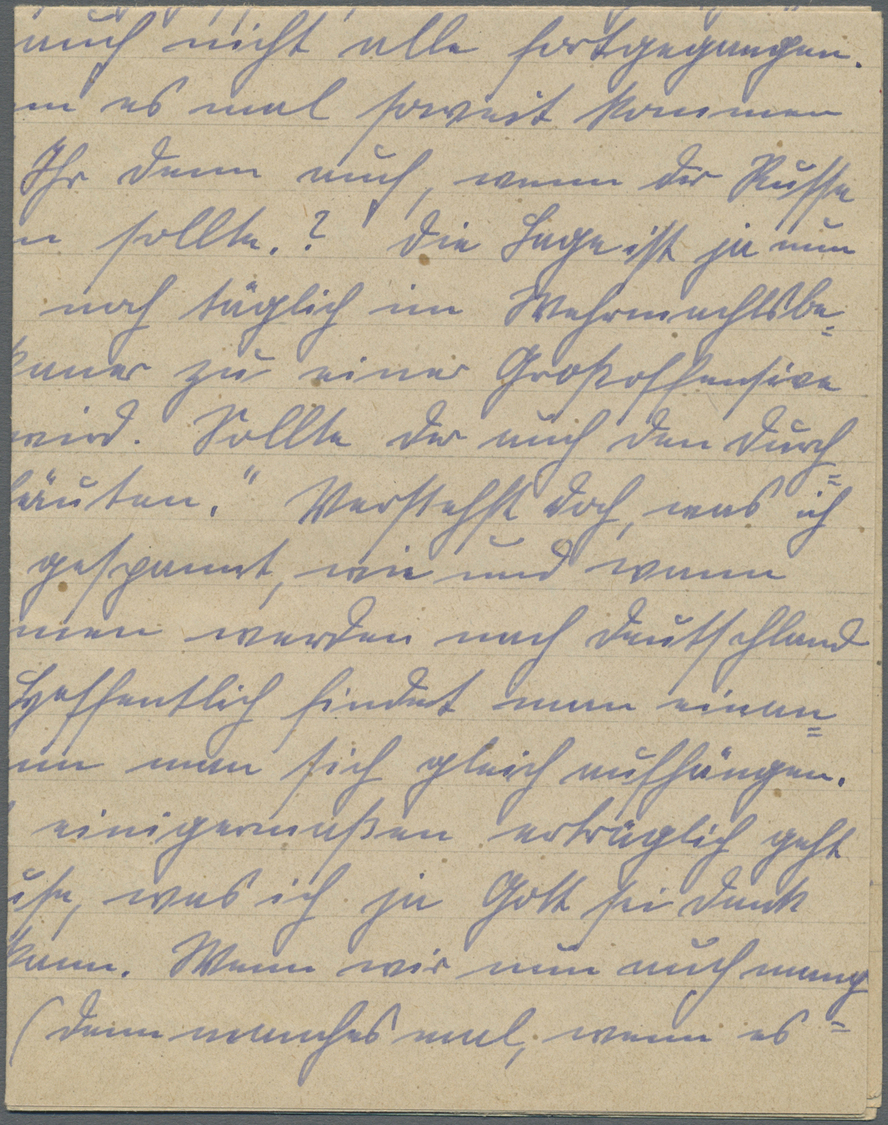 auch nicht alle fortgegangen.
nn es mal soweit kommen
Ihr denn auch, wenn der Russe
n sollte.? Die Lage ist ja nun
noch täglich im Wehrmachtsbe=
kaner zu einer Großoffensive
wird. Sollte der auch den Durch=
läuten." Verstehst doch, was ich
gespannt, wie und wann
men werden nach Deutschland
Hoffentlich findet man einan=
nn man sich gleich aufhängen.
einigermaßen erträglich geht
use, was ich ja Gott sei Dank
kann. Wenn wir nun auch mang
(denn manches mal, wenn es =